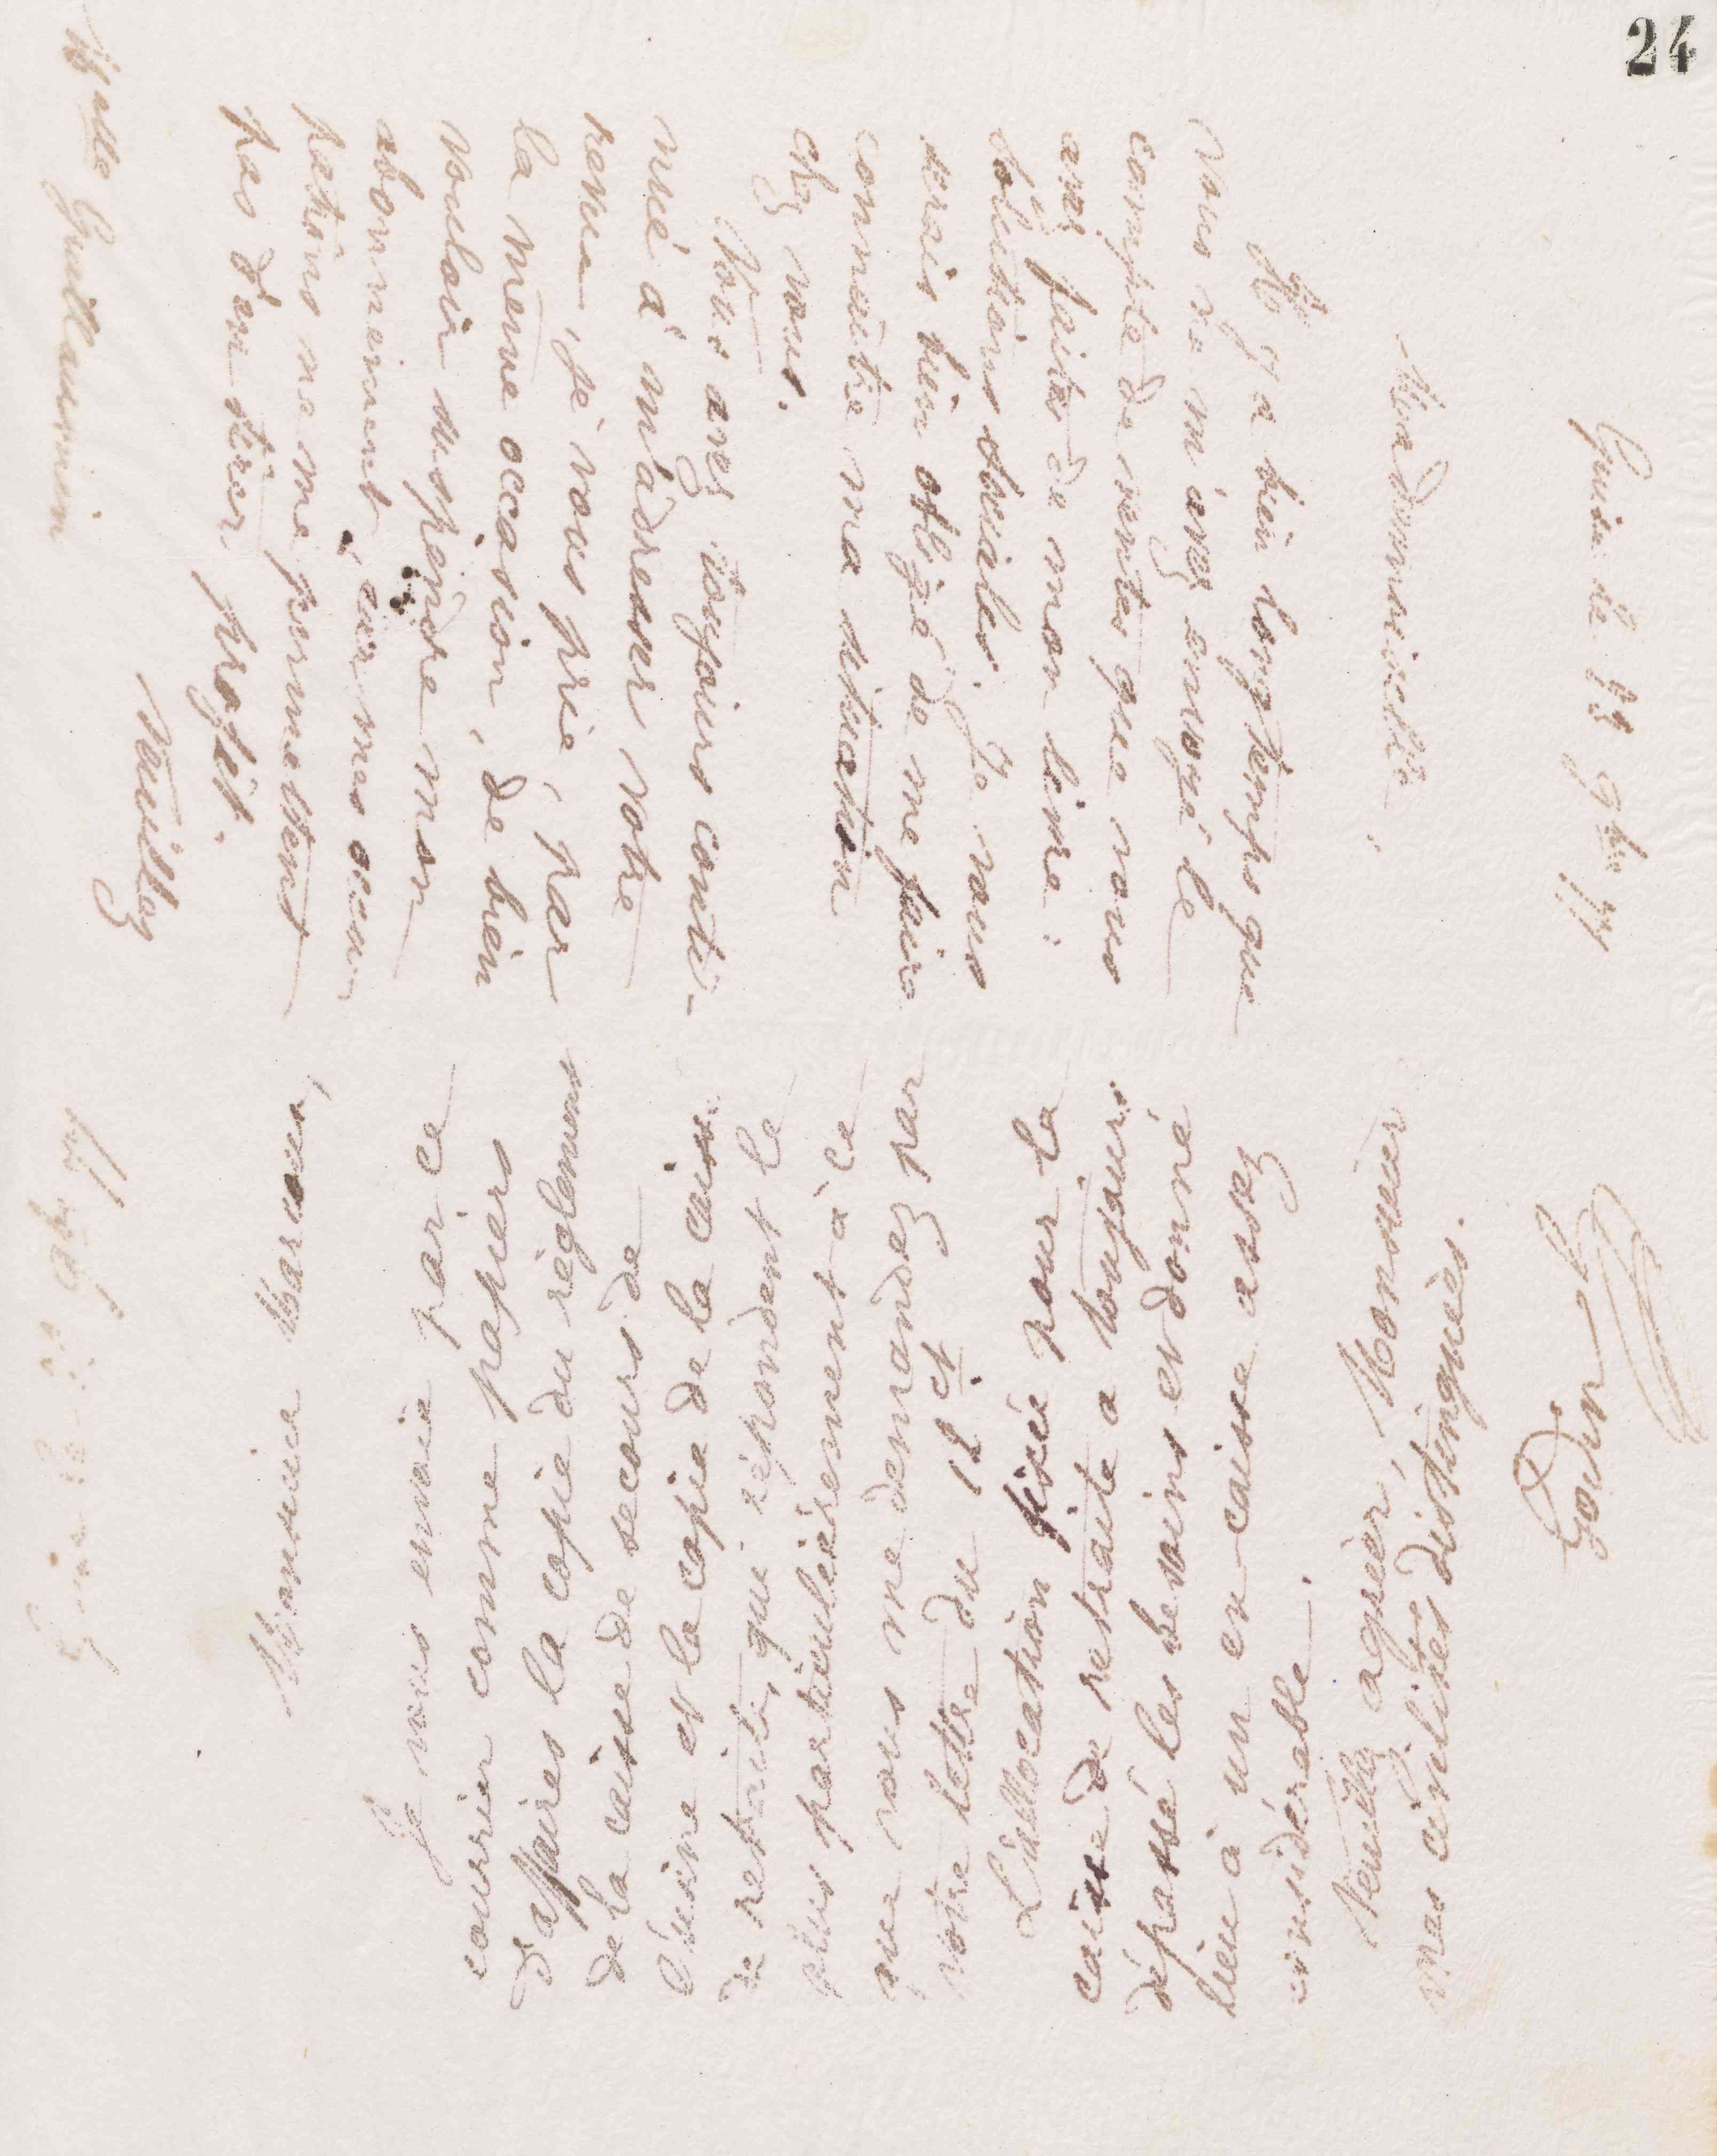 24
Guise le 13 9bre 77
Mesdemoiselle,
Il y a bien longtemps que
vous ne m'avez envoyé le
compte de ventes que vous
avez faites de mon livre :
Solutions sociales. Je vous
serais bien obligé de me faire
connaitre ma situation
chez vous.
Vous avez toujours conti-
nué à m'adresser votre
revue, je vous prie, par
la même occasion, de bien
vouloir suspendre mon
abonnement, car mes occu-
pations ne me permettent
pas d'en tirer profit.
Veuillez
Melle Guillaumin
Guise le 13 9bre 77
Monsieur Marcoux,
Je vous envoie par ce
courrier comme papiers
d'affaires la copie du règlement
de la caisse de secours de
l'usine et la copie de la caisse
de retraite, qui répondent le
plus particulièrement à ce
que vous me demandez par
votre lettre du 12 ct
L'allocation fixée pour la
caisse de retraite a toujours
dépassé les besoins et donné
lieu à un en-caisse assez
considérable.
Veuillez agréer, Monsieur
mes civilités distinguées.
Godin